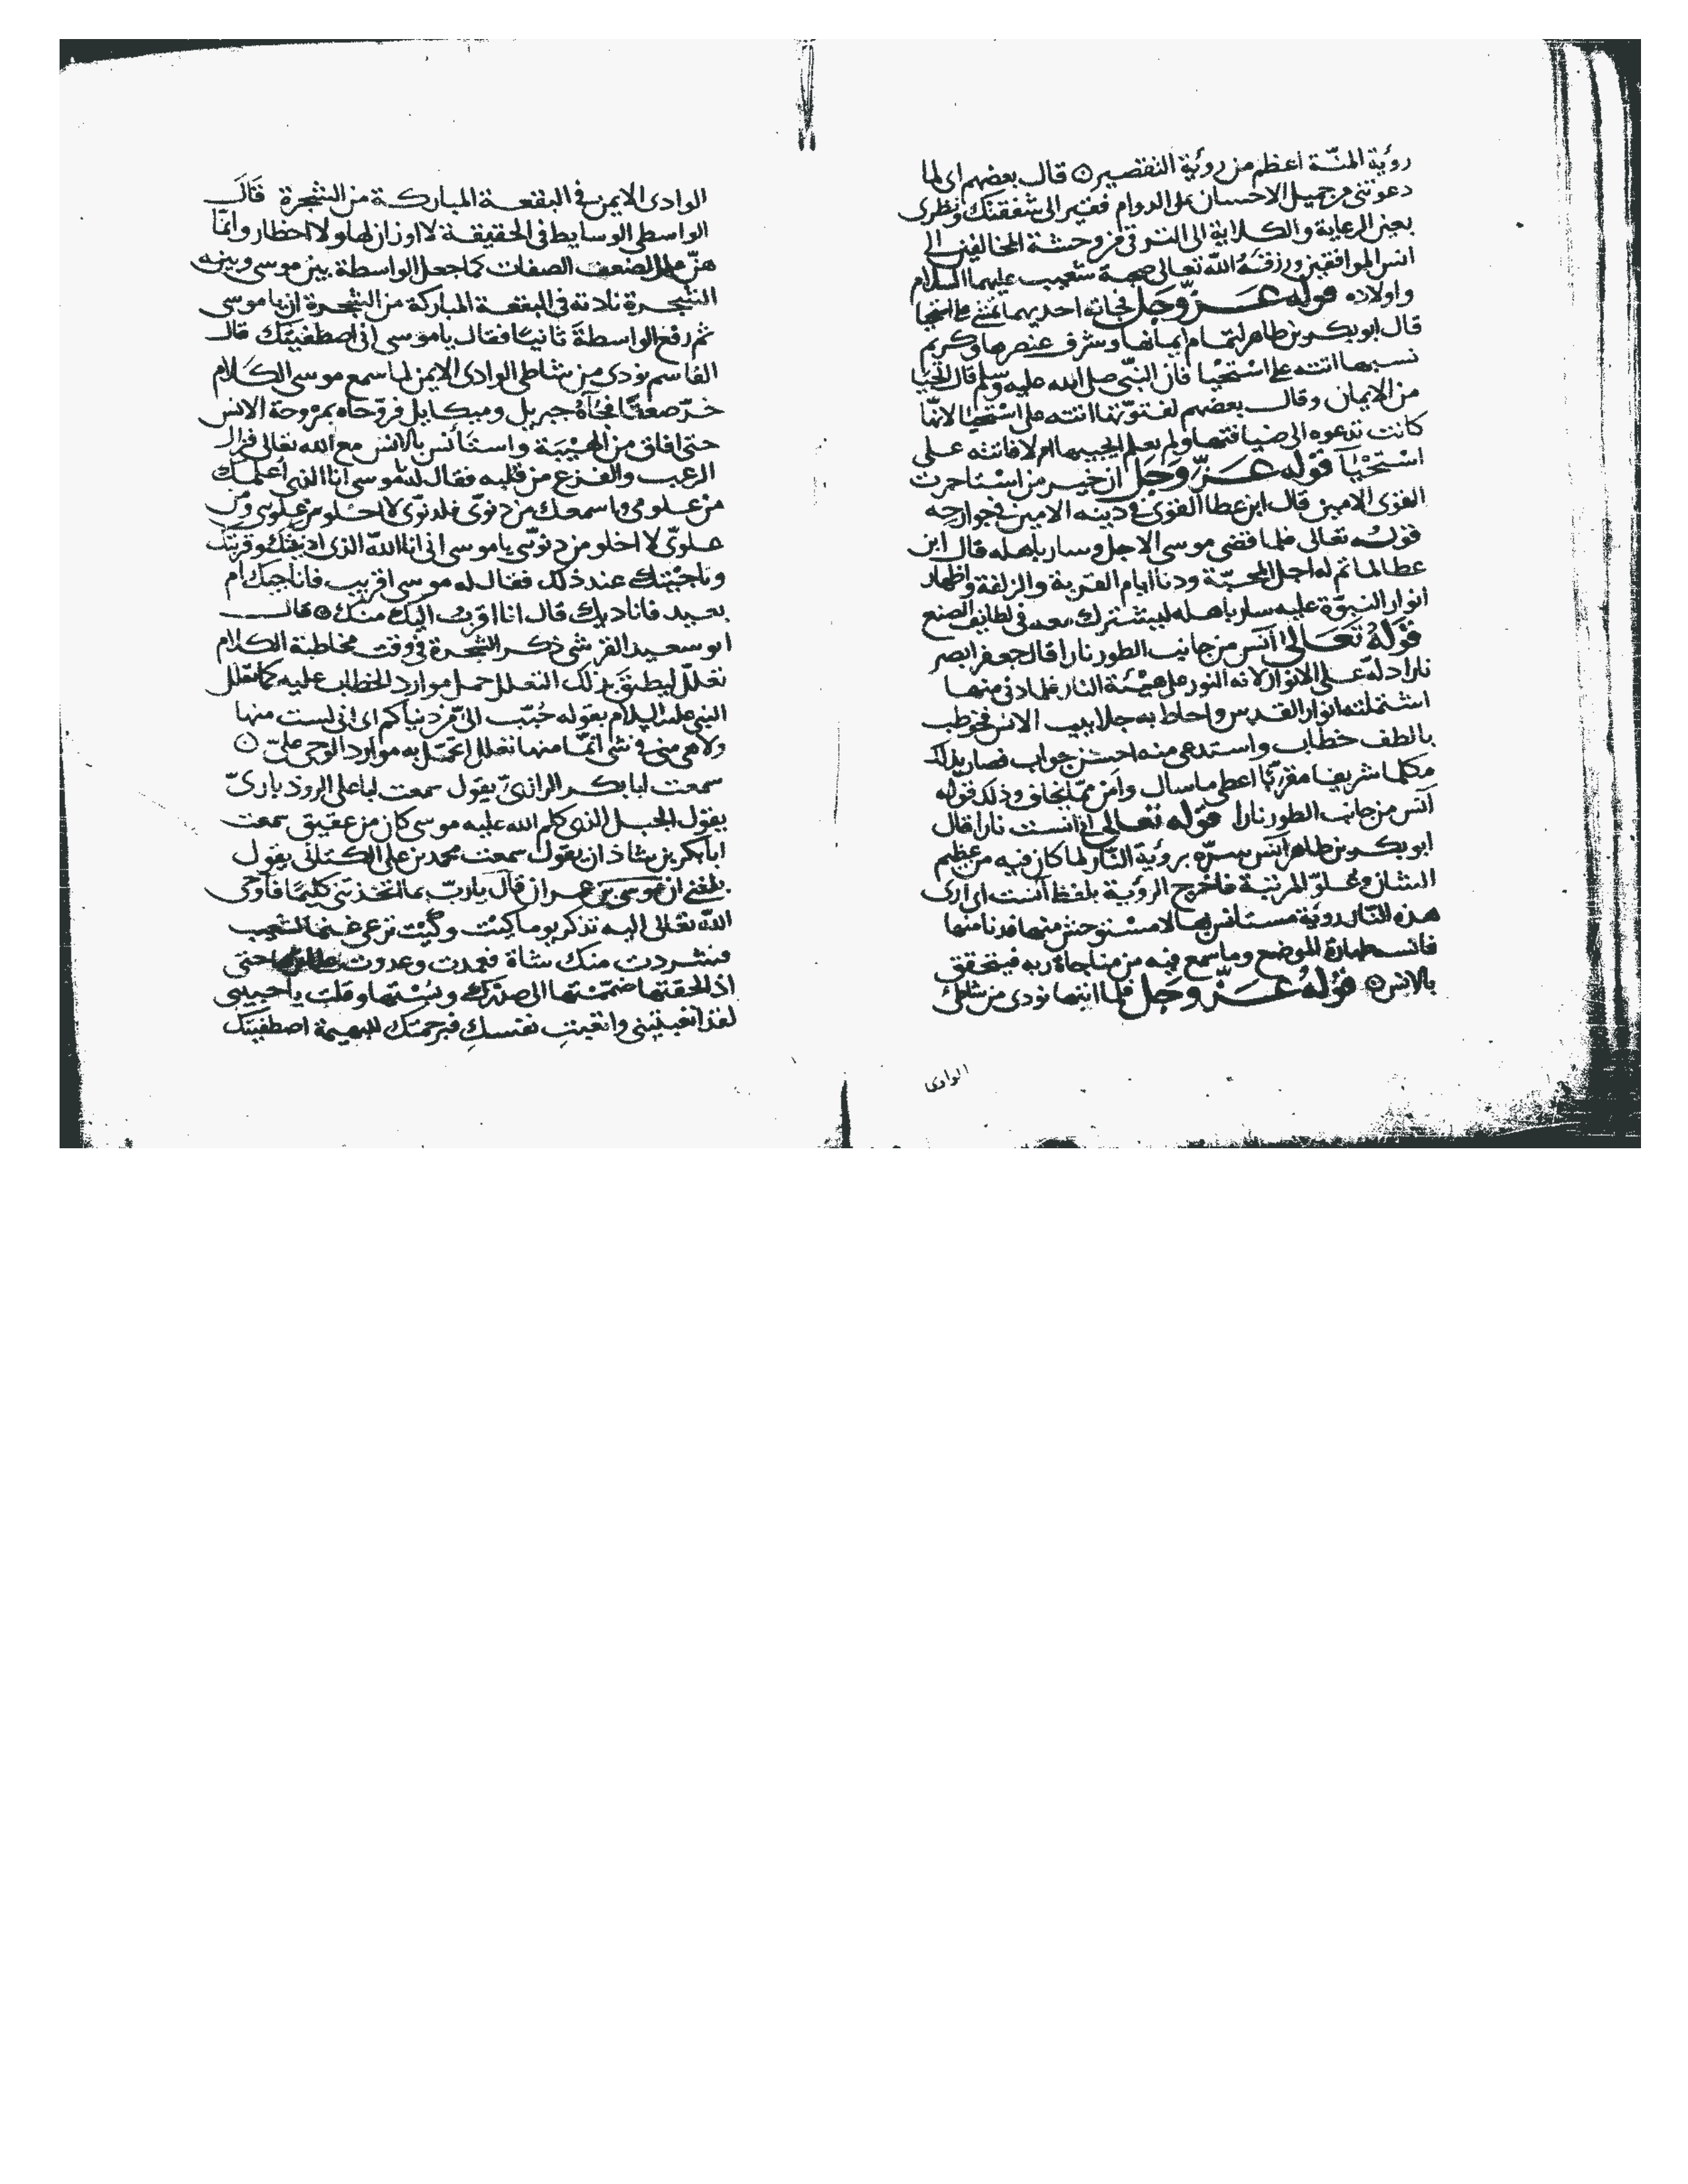 رؤية المنّة اعظم من رؤية التقصير ۞ قال بعضهم اى لما
دعوتنى من جميل الاحسان على الدوام فقير الى شفقتك ونظرى
بعين الرعاية والكلاية الى الترقى من وحشة المخالفين الى
انس الموافقين ورزقه الله تعالى صحبة شعيب عليهما السلام
واولاده قوله عزّ وجل فجاته احديهما تمشى على استحيا
قال ابو بكر بن طاهر لتمام ايمانها وشرف عنصرها وكريم
نسبها اتته على استحيا فان النبّى صلى الله عليه وسلم قال الحيا
من الايمان وقال بعضهم لفتوّتها اتته على استحيا لانّها
كانت تدعوه الى ضيافتها ولم يعلم ايجيبها ام لا فاتته على
استحيا قوله عزّ وجل ان خير من استاجرت
القوى الامين قال ابن عطا القوى فى دينه الامين فى جوارحه
قوله تعالى فلما قضى موسى الاجل وسار باهله قال ابن
عطا لما تم له اجل المحبّة ودنا ايام القربة والزلفة واظهار
انوار النبوّة عليه سار باهله ليشترك معه فى لطايف الصنع
قوله تعالى آنس من جانب الطور نارا قال جعفر ابصر
نارا دلّه على الانوار لانه النور على هيئة النار فلما دنى منها
اشتملته انوار القدس واحاط به جلابيب الانس فخوطب
بالطف خطاب واستدعى منه احسن جواب فصار بذلك
مكلما شريفا مقرّبًا اعطى ما سال وآمن ممّا يخاف وذلك قوله
آنس من جانب الطور نارا قوله تعالى انى آنست نارا قال
ابو بكر بن طاهر آنس سرّه برؤية النّار لما كان فيه من عظيم
الشان وعلوّ المرتبة فاخرج الرؤية بلفظ آنست اى ارى
هذه النّار رؤية مستانس بها لا مستوحش منها فدنا منها
طهارة الموضع وما سمع فيه من مناجاة ربه فيتحقق
بالانس ۞ قوله عزّ وجل فلما اتيها نودى من شاطئ
الوادى
الوادى الايمن فى البقعة المباركة من الشجرة قال
الواسطى الوسايط فى الحقيقة لا اوزان لها ولا اخطار وانّما
الصفات كما جعل الواسطة بين موسى وبينه
الشجرة نادته فى البقعة المباركة من الشجرة ان يا موسى
ثم رفع الواسطة ثانيًا فقال يا موسى انى اصطفيتك قال
القاسم نودى من شاطى الوادى الايمن لما سمع موسى الكلام
خرّ صعقًا فجآءه جبريل وميكايل فروّحاه بمروحة الانس
حتى افاق من الهيبة واستأنس بالانس مع الله تعالى فزال
الرعب والفزع من قلبه فقال له يا موسى انا الذى اعلمك
من علومى واسمعك من دنوّى فلدنوّى لا اخلو من علوى ومن
علوّى لا اخلو من دنوّى يا موسى انى انا الله الذى ادنيتك وقربتك
وناجيتك عند ذلك فقال له موسى اقريب فاناجيك ام
بعيد فاناديك قال انا اقرب اليك منك ۞ قال
ابو سعيد القرشى ذكر الشجرة فى وقت مخاطبة الكلام
تعلّل ليطيق بذلك التعلل حمل موارد الخطاب عليه كما تعلّل
النبى عليه السلام بقوله حُبّب الىّ من دنياكم اى انى لست منها
ولا هى منى فى شى انّما منها تعلل اتحمّل به موارد الوحى علىّ ۞
سمعت ابا بكر الرازىّ يقول سمعت ابا على الروذبارىّ
يقول الجبل الذى كلم الله عليه موسى كان من عقيق سمعت
ابا بكر بن شاذان يقول سمعت محمد بن على الكتانى يقول
بلغنى ان موسى بن عمران قال يا ربّ بما اتخذتنى كليمًا فاوحى
الله تعالى اليه تذكر يوما كنت وكنت ترعى غنما لشعيب
فشردت منك شاة فعمدت وعدوت حتى
اذ لحقتها ضممتها الى صدرك وبستها وقلت يا حبيبى
لقد اتعبتينى واتعبت نفسك فبرحمتك للبهيمة اصطفيتك